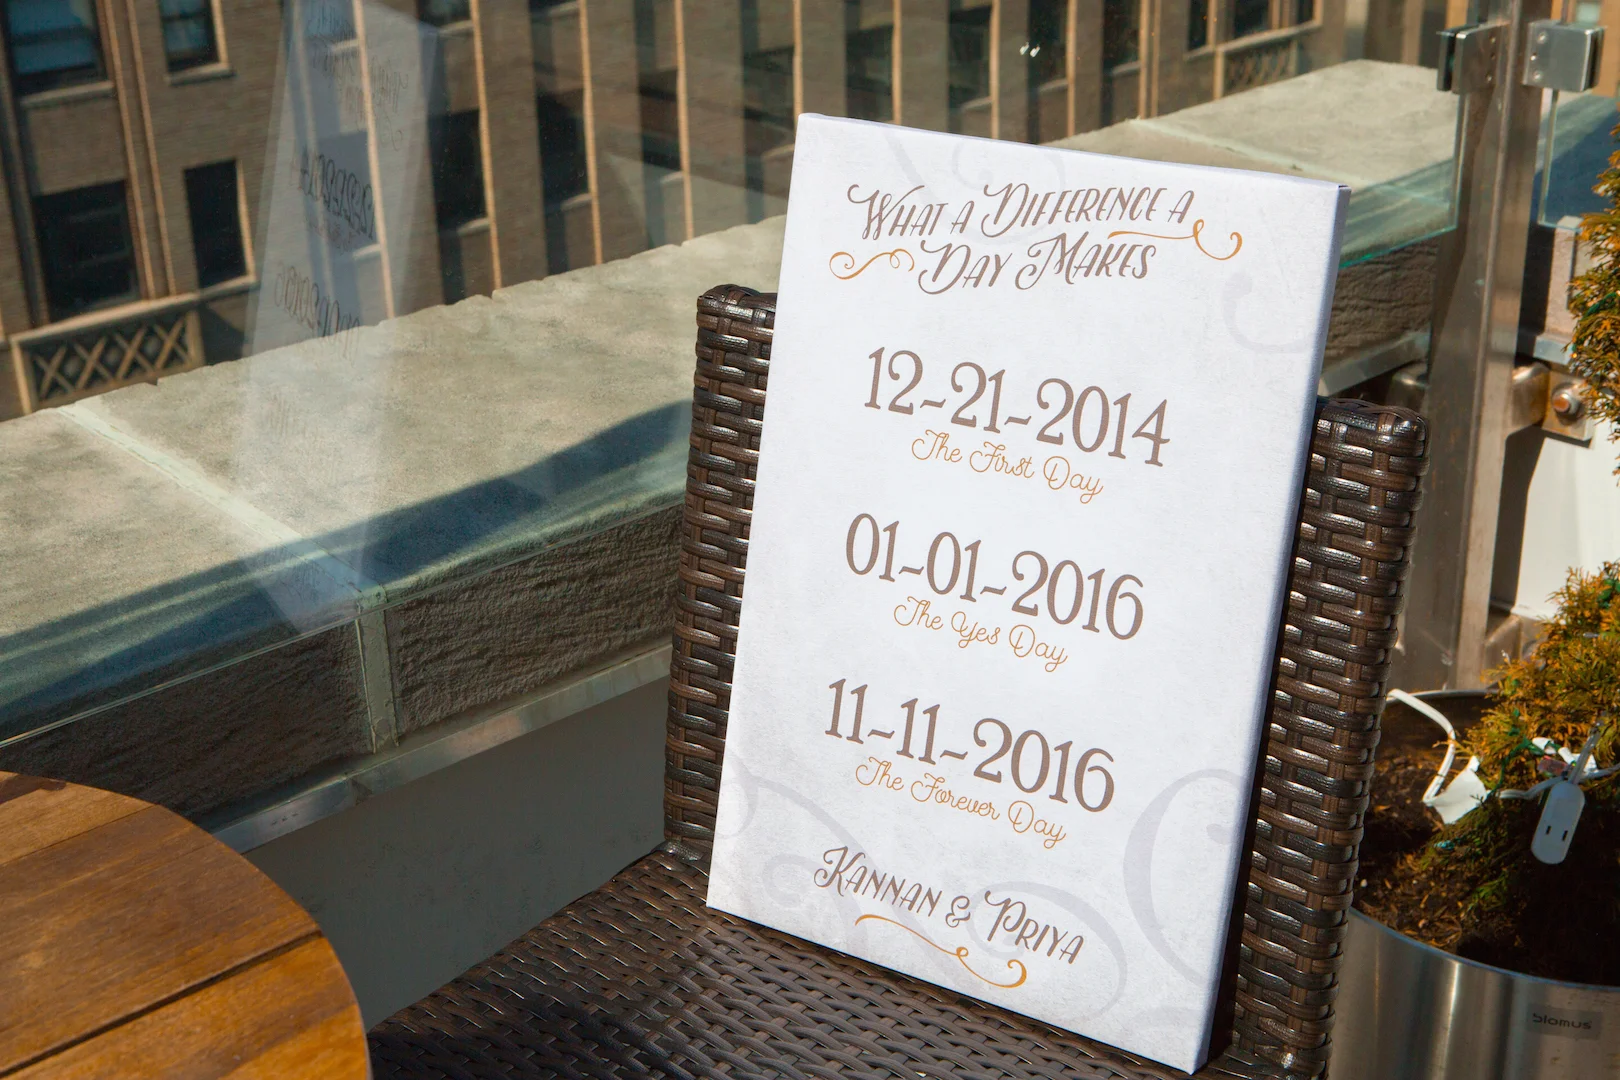 What a Difference a
Day Makes
12-21-2014
The First Day
01-01-2016
The Yes Day
11-11-2016
The Forever Day
Kannan & Priya
blomus